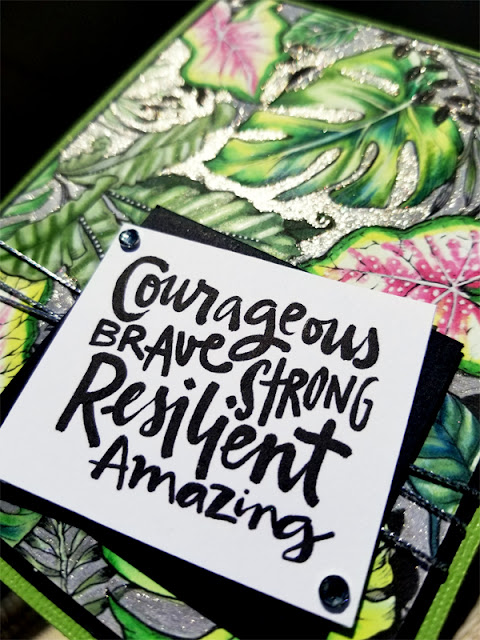 Courageous
BRAVE STRONG
Resilient
Amazing